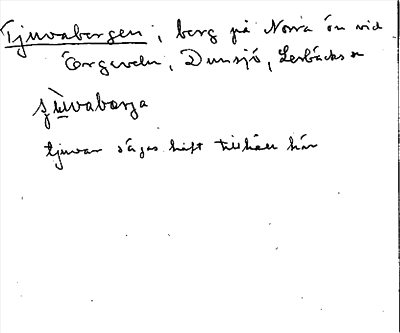 Tjuvabergen, berg på Norra ön vid
Örgaveln, Dunsjö, Lerbäcks sn
ʃùvabærga
tjuvar sägas haft tillhåll här